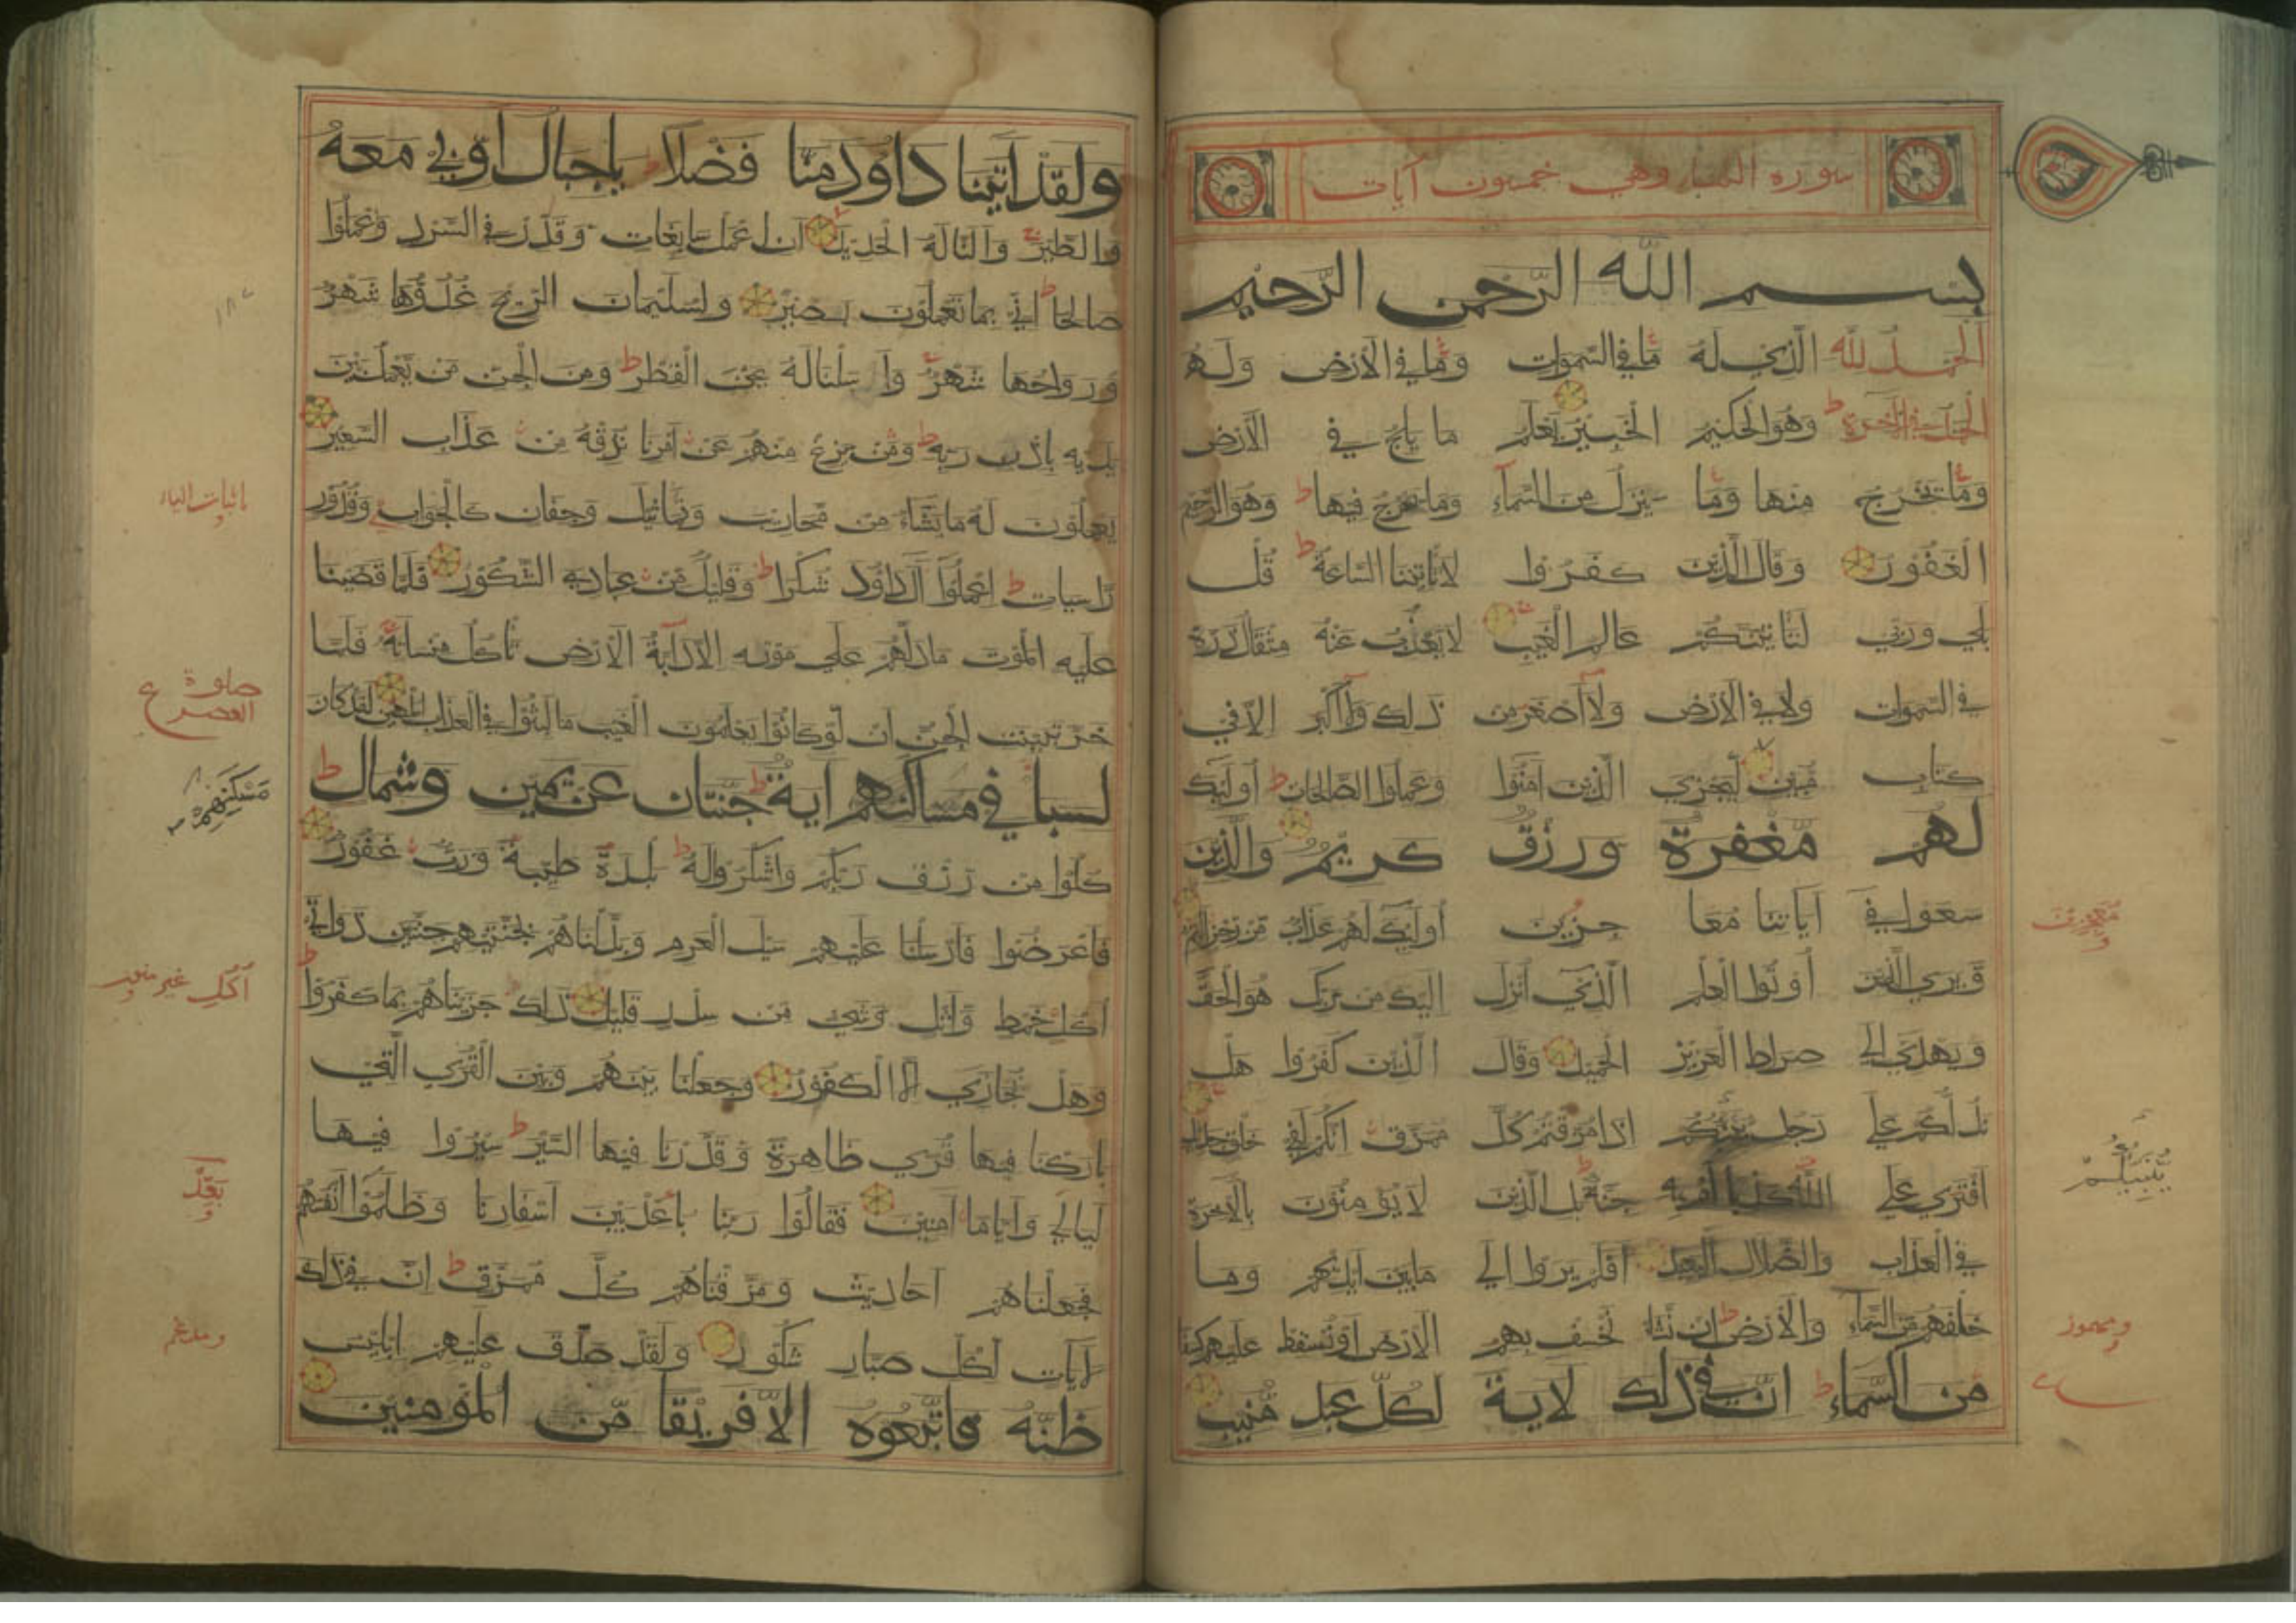 سورة السبا وهي خمسون آيات
بسم الله الرحمن الرحيم
الحمد لله الذي له ما في السموات وما في الأرض وله
الحمد في الآخرة وهو الحكيم الخبير يعلم ما يلج في الأرض
وما يخرج منها وما ينزل من السماء وما يعرج فيها وهو الرحيم
الغفور وقال الذين كفروا لا تأتينا الساعة قل
بلى وربي لتأتينكم عالم الغيب لا يعزب عنه مثقال ذرة
في السموات ولا في الأرض ولا أصغر من ذلك ولا أكبر الا في
كتاب مبين ليجزي الذين آمنوا وعملوا الصالحات أولئك
لهم مغفرة ورزق كريم والذين
سعوا في آياتنا معا جزين أولئك لهم عذاب من رجز اليم
ويرى الذين أوتوا العلم الذي أنزل اليك من ربك هو الحق
ويهدي الى صراط العزيز الحميد وقال الذين كفروا هل
ندلكم على رجل ينبئكم اذا مزقتم كل ممزق انكم لفي خلق جديد
افترى على الله كذبا أم به جنة بل الذين لا يؤمنون بالآخرة
في العذاب والضلال البعيد أفلم يروا الى ما بين أيديهم وما
خلفهم من السماء والأرض ان نشأ نخسف بهم الأرض أو نسقط عليهم كسفا
من السماء ان في ذلك لاية لكل عبد منيب
معجزين
ولقد آتينا داود منا فضلا يا جبال أوبي معه
والطير وألنا له الحديد أن اعمل سابغات وقدر في السرد واعملوا
صالحا اني بما تعملون بصير ولسليمان الريح غدوها شهر
ورواحها شهر وأسلنا له عين القطر ومن الجن من يعمل بين
يديه باذن ربه ومن يزغ منهم عن أمرنا نذقه من عذاب السعير
يعملون له ما يشاء من محاريب وتماثيل وجفان كالجواب وقدور
راسيات اعملوا آل داود شكرا وقليل من عبادي الشكور فلما قضينا
عليه الموت ما دلهم على موته الا دابة الأرض تأكل منسأته فلما
خر تبينت الجن أن لو كانوا يعلمون الغيب ما لبثوا في العذاب المهين لقد كان
لسبا في مساكنهم اية جنتان عن يمين وشمال
كلوا من رزق ربكم واشكروا له بلدة طيبة ورب غفور
فأعرضوا فأرسلنا عليهم سيل العرم وبدلناهم بجنتيهم جنتين ذواتي
أكل خمط وأثل وشيء من سدر قليل ذلك جزيناهم بما كفروا
وهل نجازي الا الكفور وجعلنا بينهم وبين القرى التي
باركنا فيها قرى ظاهرة وقدرنا فيها السير سيروا فيها
ليالي وأياما آمنين فقالوا ربنا باعد بين أسفارنا وظلموا أنفسهم
فجعلناهم أحاديث ومزقناهم كل ممزق ان في ذلك
لآيات لكل صبار شكور ولقد صدق عليهم ابليس
ظنه فاتبعوه الا فريقا من المؤمنين
باثبات الياء
صلوة
العصر
مسكنهم
أكل غير منون
بعد
ومدغم